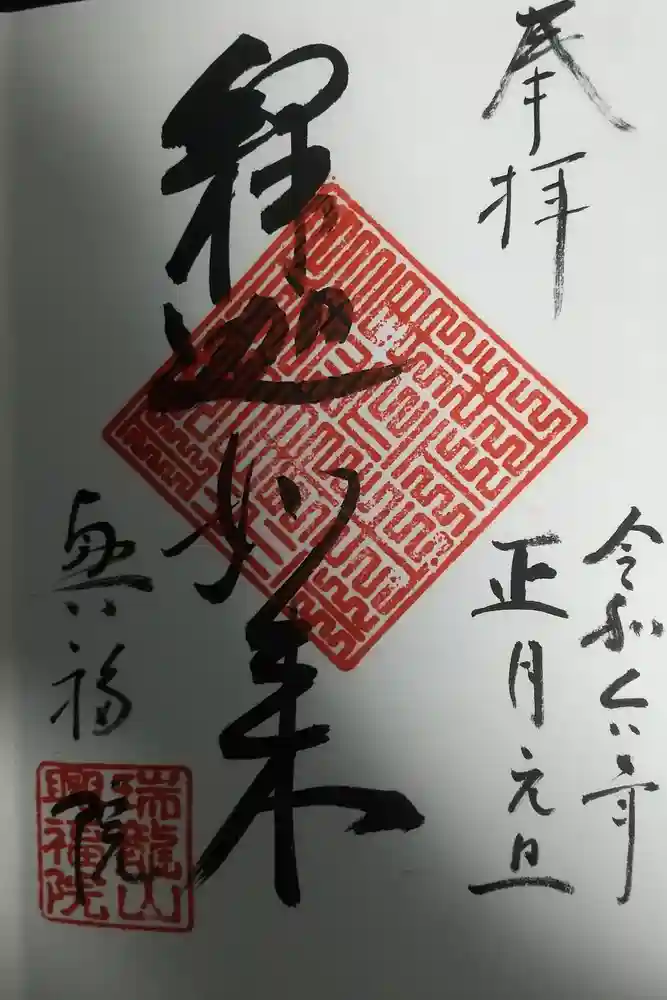 奉拝
令和六年
正月元旦
釋迦如来
興福院
瑞龍山
興福院